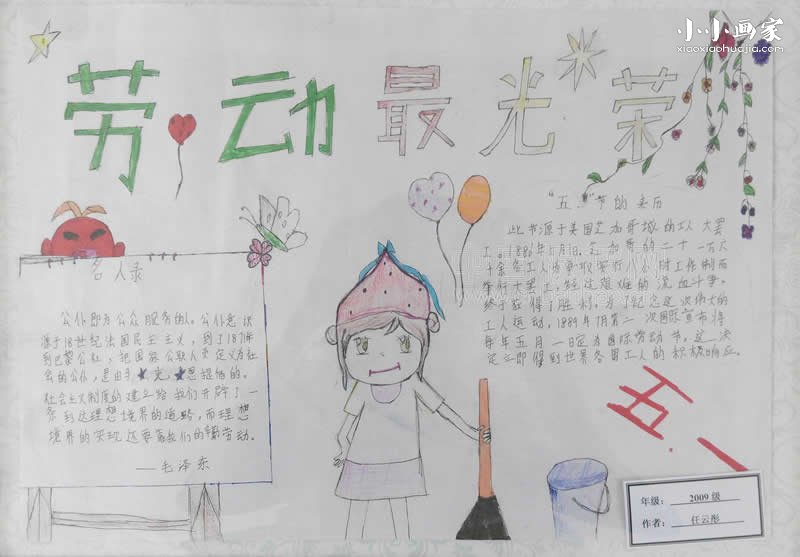 小小画家
xiaoxiaohuajia.com
劳动最光荣
"五·一"节的来历
此节源于美国芝加哥城的工人大罢
工。1886年5月1日，芝加哥的二十一万六
千余名工人为争取实行八小时工作制而
举行大罢工，经过艰难的流血斗争，
终于获得了胜利，为了纪念这次伟大的
工人运动，1889年7月第二次国际宣布将
每年五月一日定为国际劳动节。这一决
定立即得到世界各国工人的积极响应。
名人录
公仆即为公众服务的人。公仆意识
源于18世纪法国民主主义，到了1871年
到巴黎公社，把国家公职人员定义为社
会的公仆，是由于克，思提倡的。
社会主义制度的建立给我们开辟了一
条到达理想境界的道路，而理想
境界的实现还要靠我们的辛勤劳动。
——毛泽东
五.一
年级： 2009级
作者： 任云彤